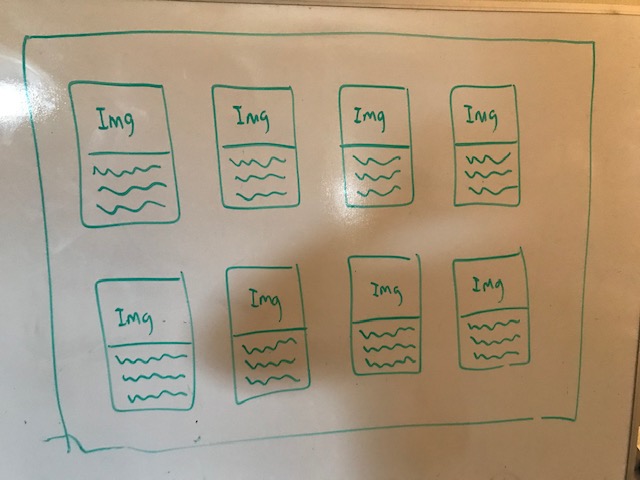 Img
Img
Img
Img
Img
Img
Img
Img